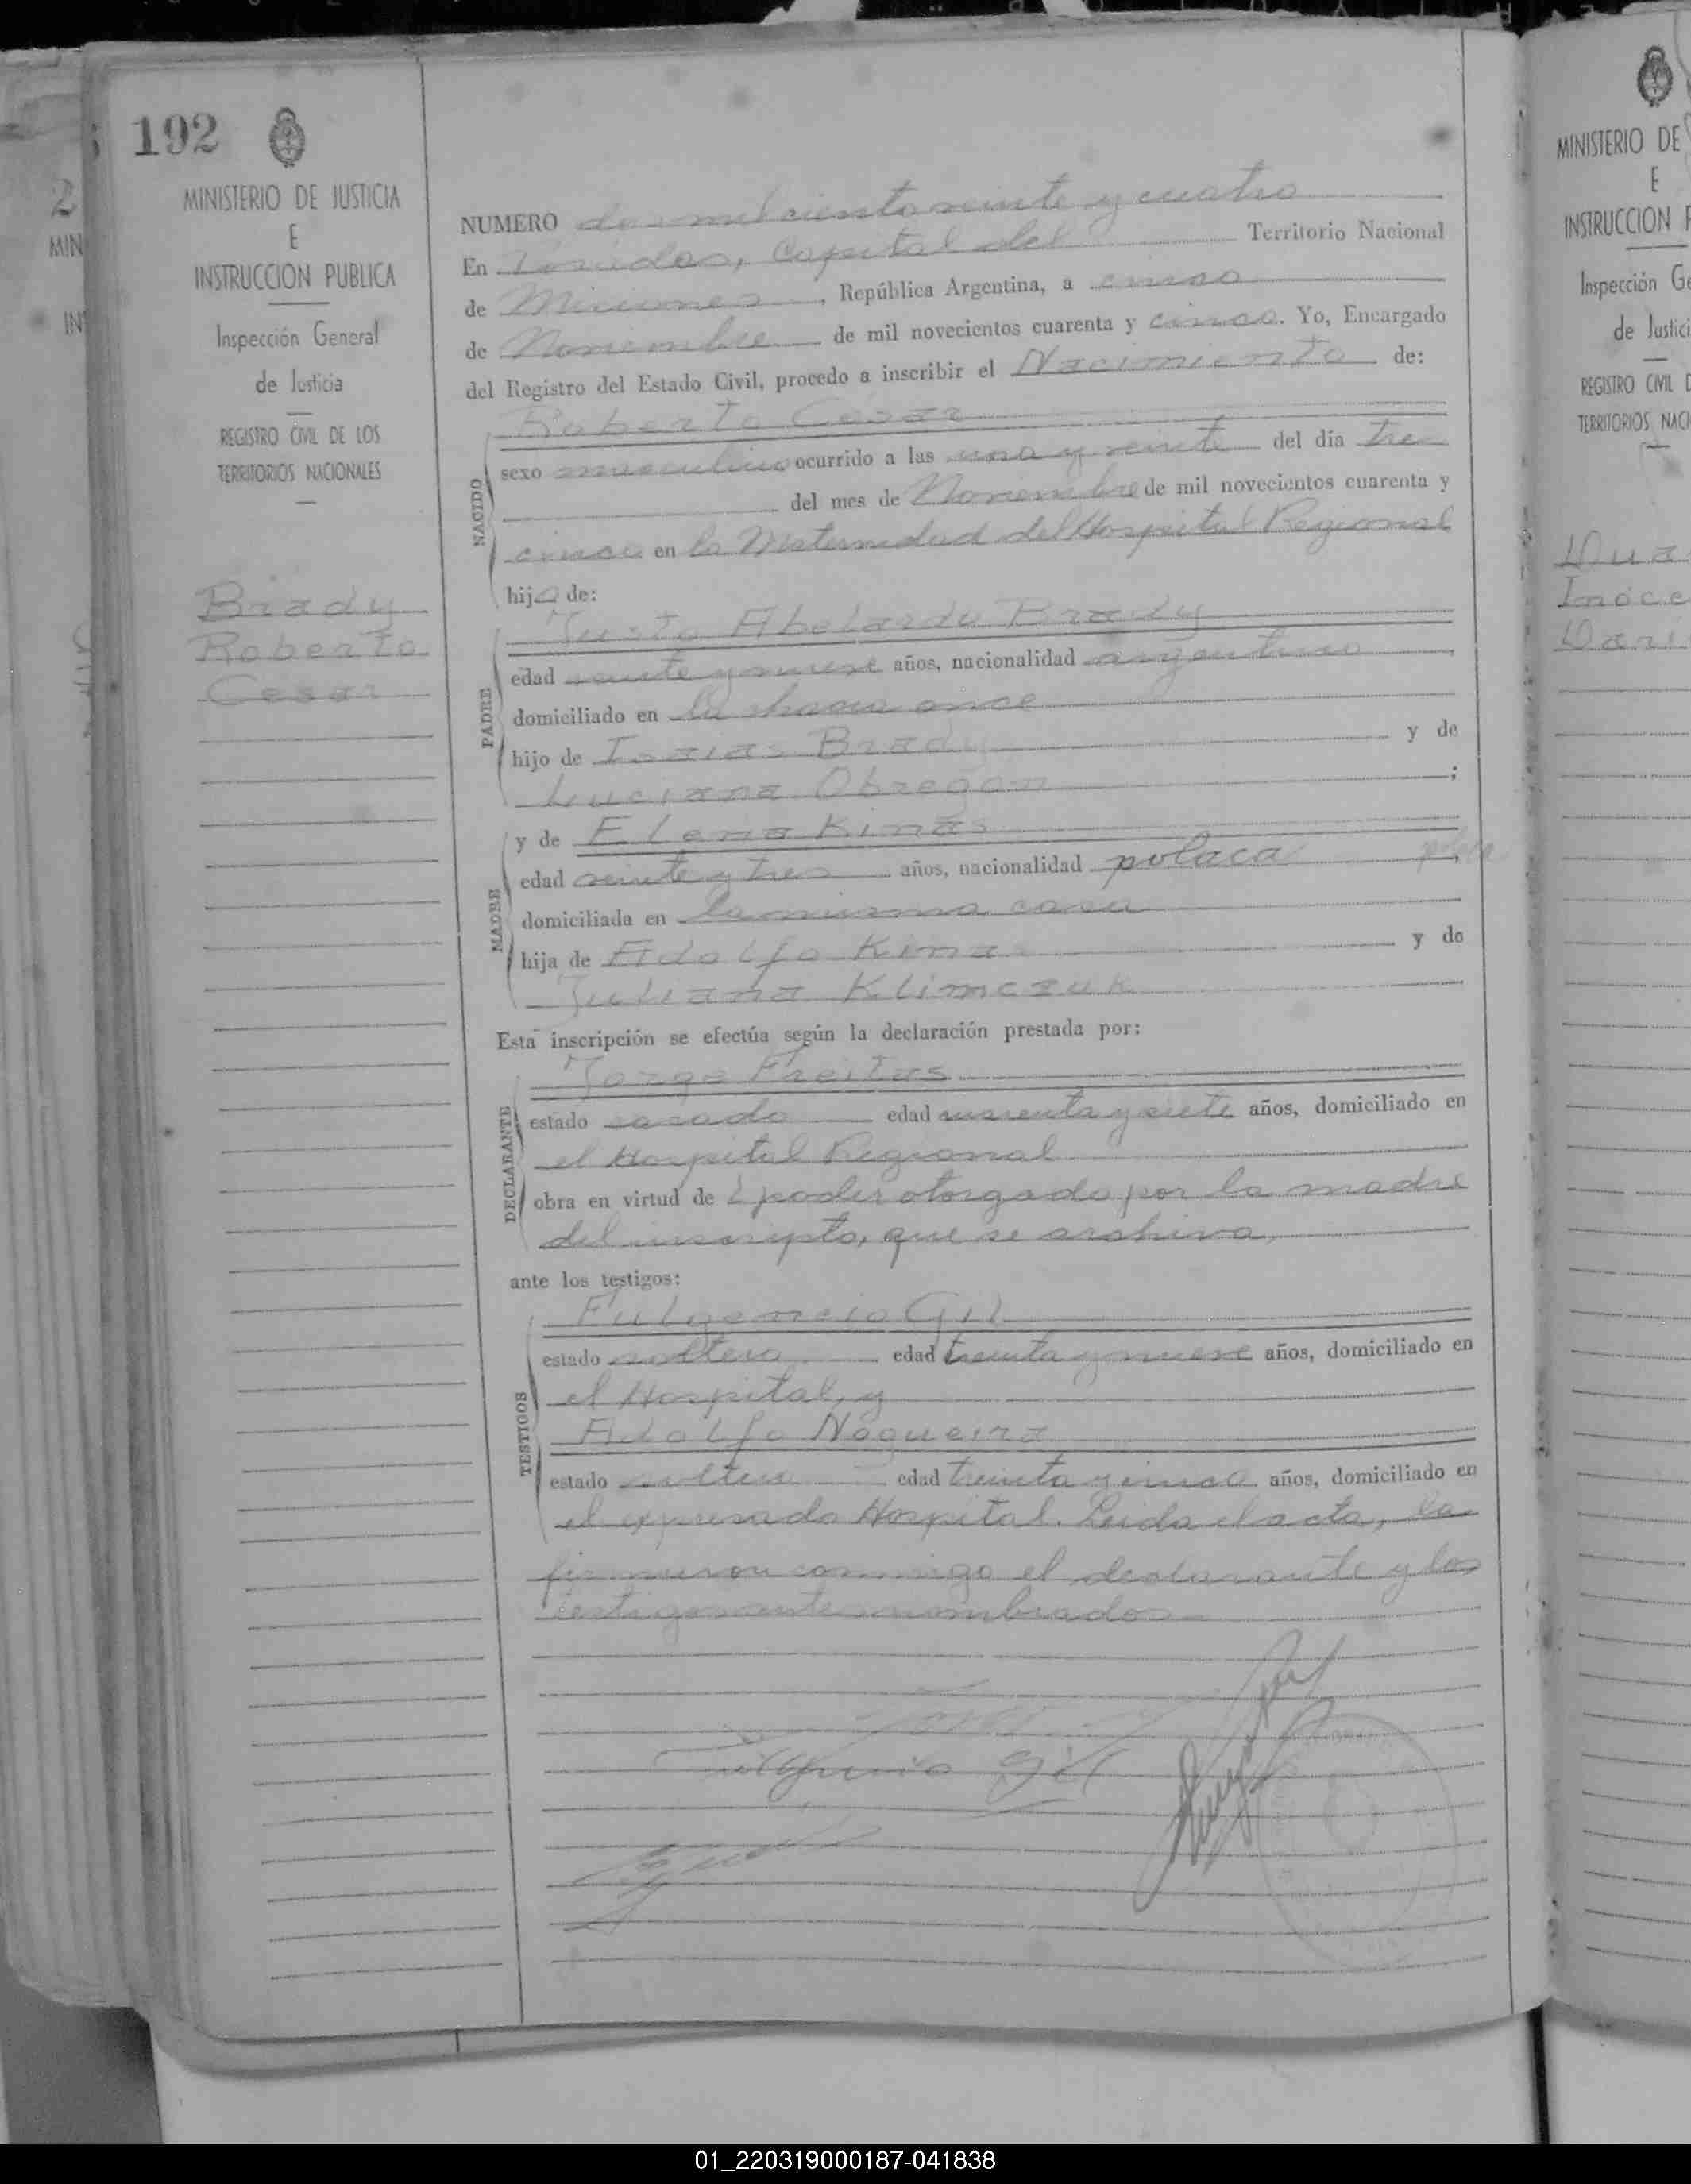 192
MINISTERIO DE JUSTICIA
E
INSTRUCCION PUBLICA
Inspección General
de Justicia
REGISTRO CIVIL DE LOS
TERRITORIOS NACIONALES
Brady
Roberto
Cesar
NUMERO dos mil ciento veinte y cuatro
En Posadas, Capital del Territorio Nacional
de Misiones, República Argentina, a cinco
de Noviembre de mil novecientos cuarenta y cinco. Yo, Encargado
del Registro del Estado Civil, procedo a inscribir el Nacimiento de:
NACIDO
Roberto Cesar
sexo masculino ocurrido a las una y veinte del día tres
del mes de Noviembre de mil novecientos cuarenta y
cinco en la Maternidad del Hospital Regional
hijo de:
PADRE
Justo Abelardo Brady
edad veinte y nueve años, nacionalidad argentino,
domiciliado en la chacra once
hijo de Isaias Brady y de
Luciana Obregon;
MADRE
y de Elena Kinas
edad veinte y tres años, nacionalidad polaca,
domiciliada en la misma casa
hija de Adolfo Kina y de
Juliana Klimczuk
Esta inscripción se efectúa según la declaración prestada por:
DECLARANTE
Jorge Freitas
estado casado edad cuarenta y siete años, domiciliado en
el Hospital Regional
obra en virtud de poder otorgado por la madre
del inscripto, que se archiva,
ante los testigos:
TESTIGOS
Fulgencio Gil
estado soltero edad treinta y nueve años, domiciliado en
el Hospital, y
Adolfo Nogueira
estado soltero edad treinta y cinco años, domiciliado en
el expresado Hospital. Leida el acta, la
firmaron conmigo el declarante y los
testigos antes nombrados.-
Fulgencio Gil
MINISTERIO DE
E
INSTRUCCION P
Inspección Ge
de Justici
REGISTRO CIVIL D
TERRITORIOS NACI
Dua
Inoce
Dari
01_220319000187-041838